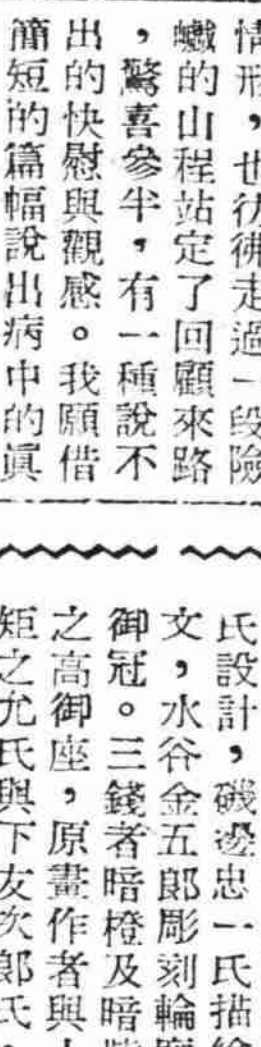 情形，也彷彿走過一段險
巇的山程站定了回顧來路
，驚喜參半，有一種說不
出的快慰與觀感。我願借
簡短的篇幅說出病中的眞
氏設計，磯邊忠一氏描
文，水谷金五郎彫刻輪
御冠。三錢者暗橙及暗
之高御座，原畫作者與
矩之允氏與下友次郎氏